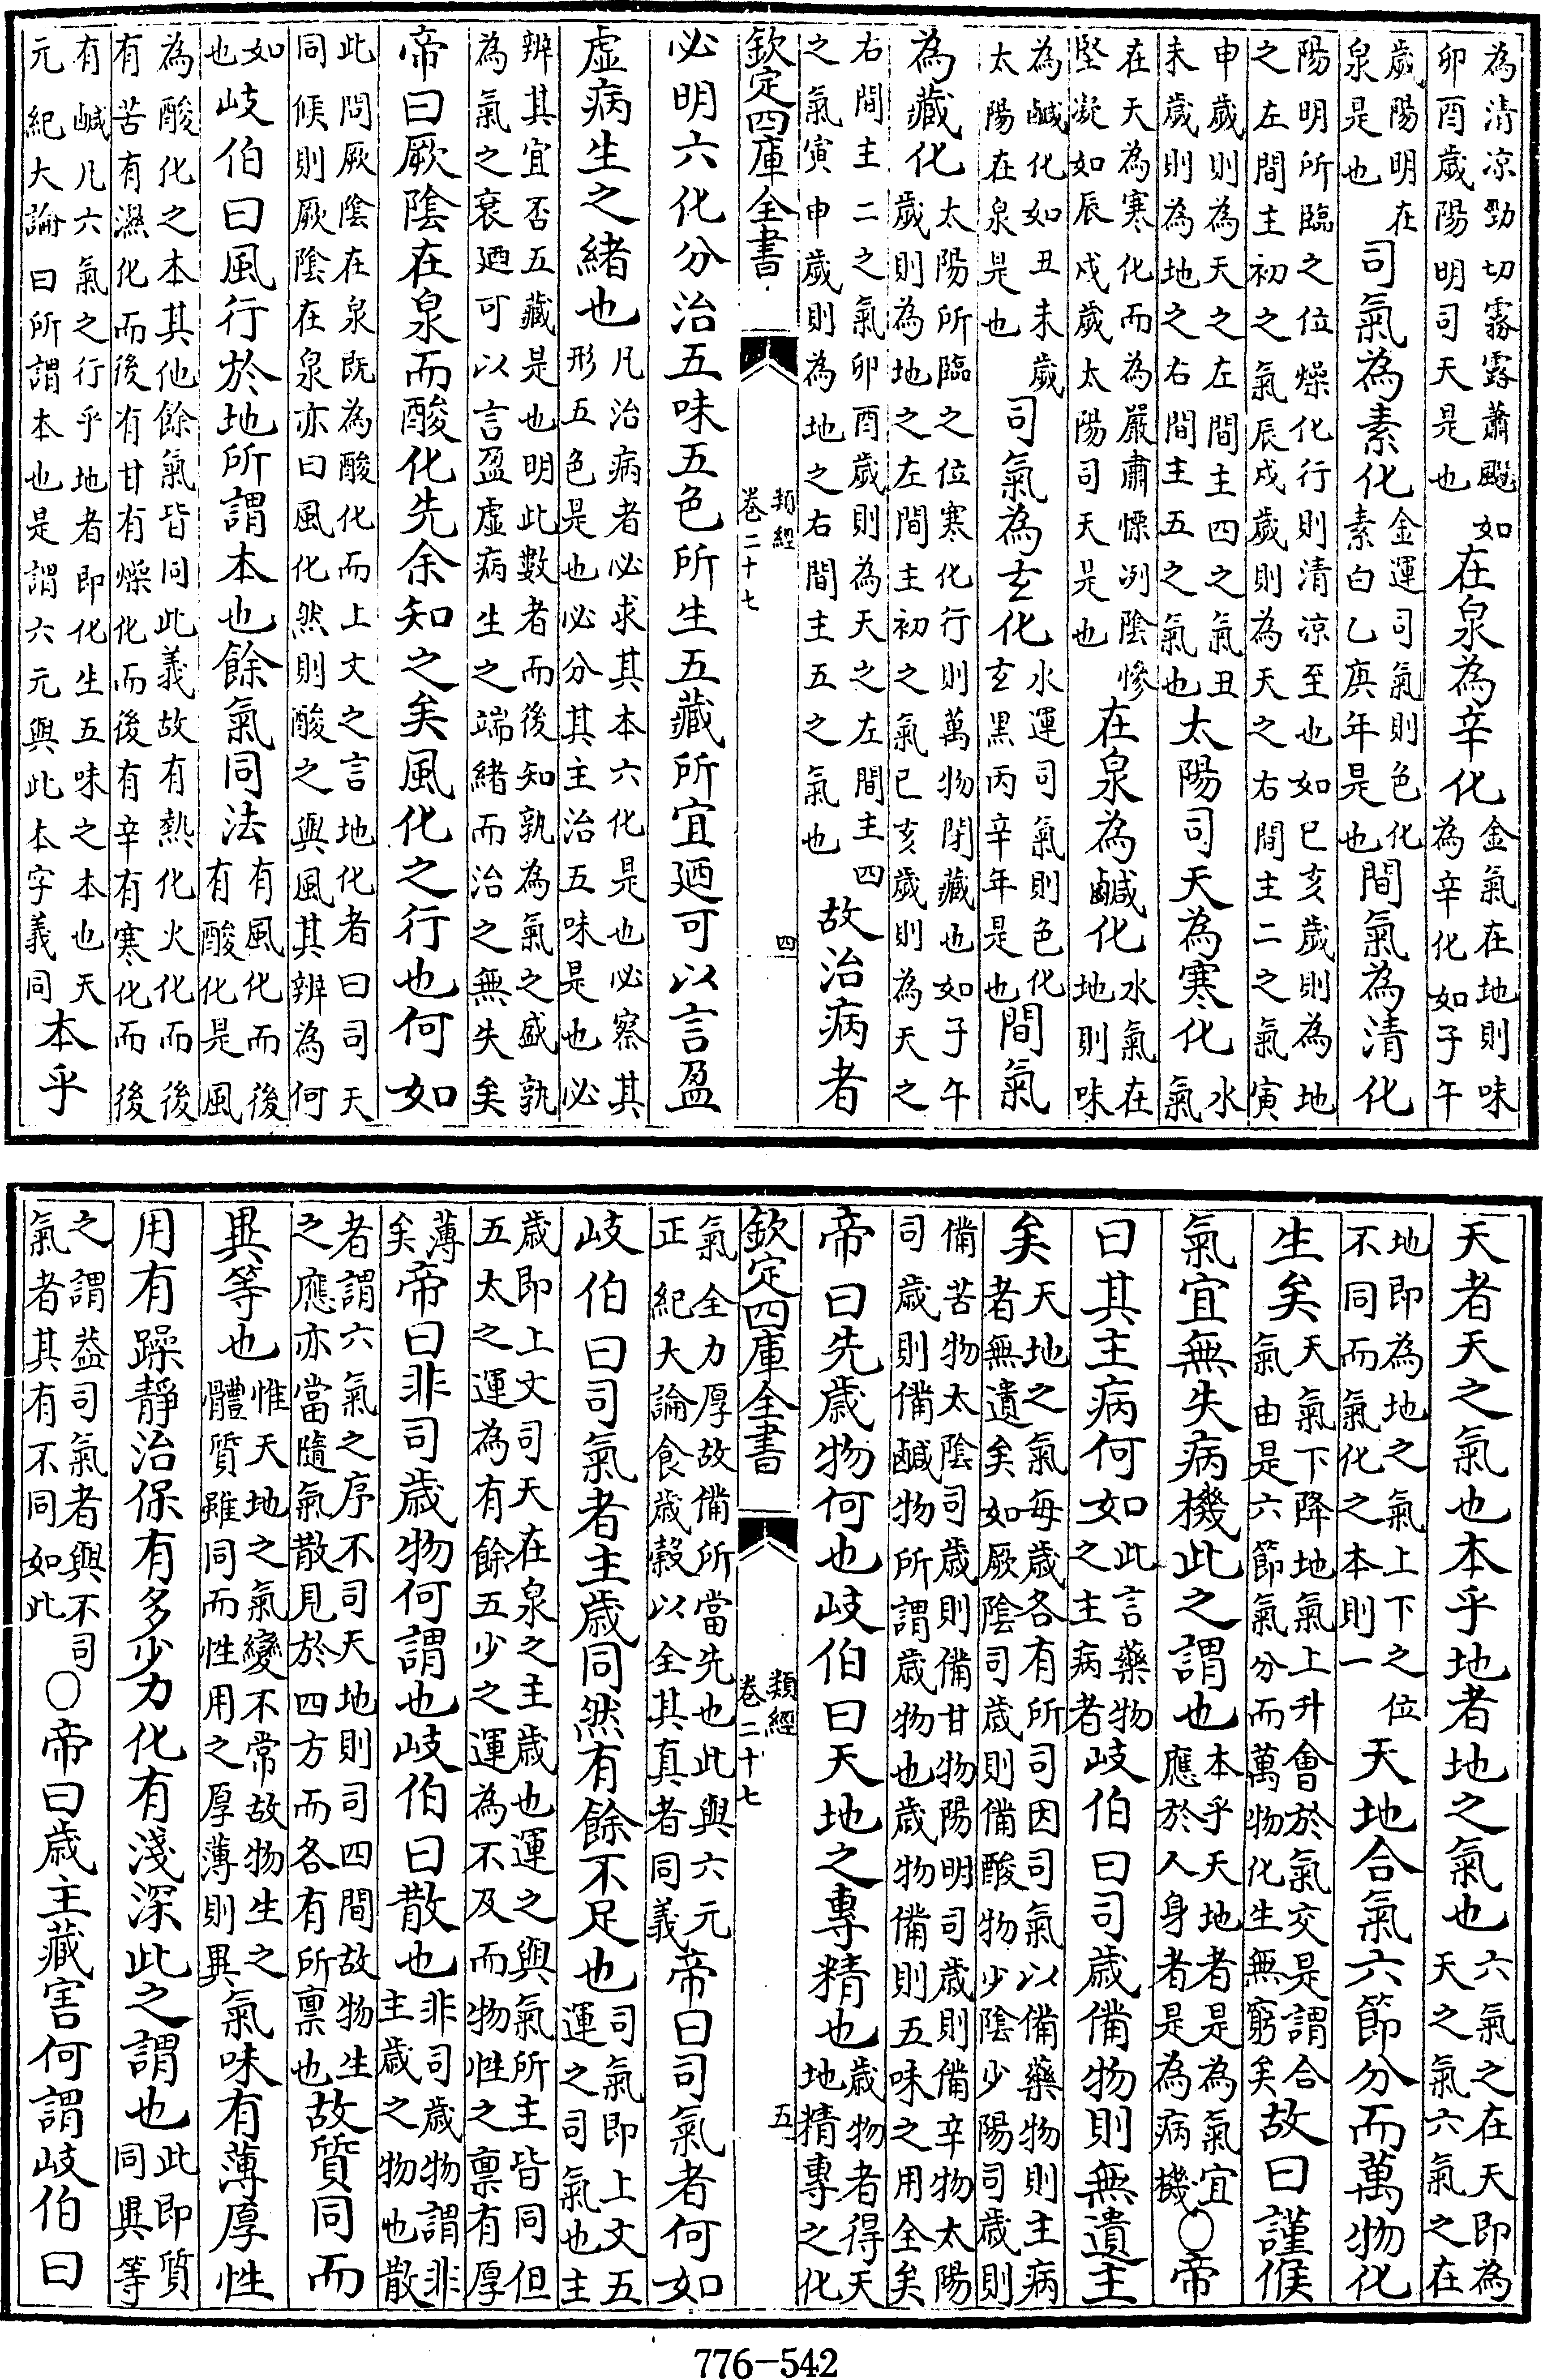 為清凉勁切霧露蕭飋如卯酉歲陽明司天是也在泉為辛化金氣在地則味為辛化如子午
歲陽明在泉是也司氣為素化金運司氣則色化素白乙庚年是也間氣為清化
陽明所臨之位燥化行則清凉至也如巳亥歲則為地之左間主初之氣辰戌歲則為天之右間主二之氣寅
申歲則為天之左間主四之氣丑未歲則為地之右間主五之氣也太陽司天為寒化水氣
在天為寒化而為嚴肅慄冽陰慘堅凝如辰戌歲太陽司天是也在泉為鹹化水氣在地則味
為鹹化如丑未歲太陽在泉是也司氣為玄化水運司氣則色化玄黑丙辛年是也間氣
為藏化太陽所臨之位寒化行則萬物閉藏也如子午歲則為地之左間主初之氣巳亥歲則為天之
右間主二之氣卯酉歲則為天之左間主四之氣寅申歲則為地之右間主五之氣也故治病者
欽定四庫全書 類經卷二十七 四
必明六化分治五味五色所生五藏所宜廼可以言盈
虛病生之緒也凡治病者必求其本六化是也必察其形五色是也必分其主治五味是也必
辨其宜否五藏是也明此數者而後知孰為氣之盛孰為氣之衰廼可以言盈虛病生之端緒而治之無失矣
帝曰厥陰在泉而酸化先余知之矣風化之行也何如
此問厥陰在泉既為酸化而上文之言地化者曰司天同候則厥陰在泉亦曰風化然則酸之與風其辨為何
如也岐伯曰風行於地所謂本也餘氣同法有風化而後有酸化是風
為酸化之本其他餘氣皆同此義故有熱化火化而後有苦有濕化而後有甘有燥化而後有辛有寒化而後
有鹹凡六氣之行乎地者即化生五味之本也天元紀大論曰所謂本也是謂六元與此本字義同本乎
天者天之氣也本乎地者地之氣也六氣之在天即為天之氣六氣之在
地即為地之氣上下之位不同而氣化之本則一天地合氣六節分而萬物化
生矣天氣下降地氣上升會於氣交是謂合氣由是六節氣分而萬物化生無窮矣故曰謹候
氣宜無失病機此之謂也本乎天地者是為氣宜應於人身者是為病機○帝
曰其主病何如此言藥物之主病者岐伯曰司歲備物則無遺主
矣天地之氣每歲各有所司因司氣以備藥物則主病者無遺矣如厥陰司歲則備酸物少陰少陽司歲則
備苦物太陰司歲則備甘物陽明司歲則備辛物太陽司歲則備鹹物所謂歲物也歲物備則五味之用全矣
帝曰先歲物何也岐伯曰天地之專精也歲物者得天地精專之化
欽定四庫全書 類經卷二十七 五
氣全力厚故備所當先也此與六元正紀大論食歲穀以全其真者同義帝曰司氣者何如
岐伯曰司氣者主歲同然有餘不足也司氣即上文五運之司氣也主
歲即上文司天在泉之主歲也運之與氣所主皆同但五太之運為有餘五少之運為不及而物性之禀有厚
薄矣帝曰非司歲物何謂也岐伯曰散也非司歲物謂非主歲之物也散
者謂六氣之序不司天地則司四間故物生之應亦當隨氣散見於四方而各有所禀也故質同而
異等也惟天地之氣變不常故物生之體質雖同而性用之厚薄則異氣味有薄厚性
用有躁靜治保有多少力化有淺深此之謂也此即質同異等
之謂蓋司氣者與不司氣者其有不同如此○帝曰歲主藏害何謂岐伯曰
776-542